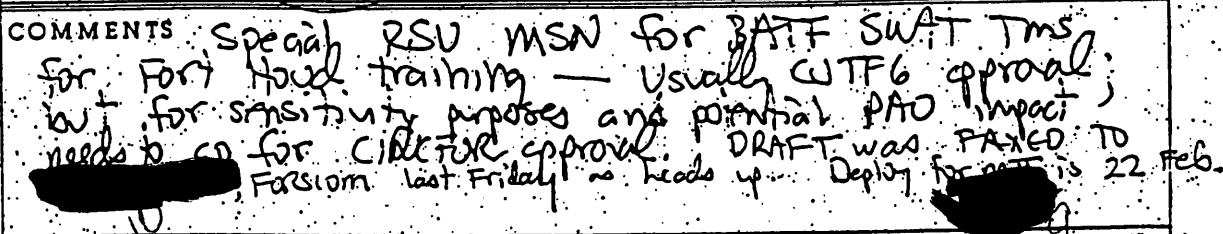 COMMENTS Special RSU MSN for BATF SWAT Tms
for Fort Hood training — Usually CJTF6 approval;
but for sensitivity purposes and potential PAO impact
needs to go for approval. DRAFT was FAXED TO
FORSCOM last Friday as heads up. Deploy for is 22 Feb.